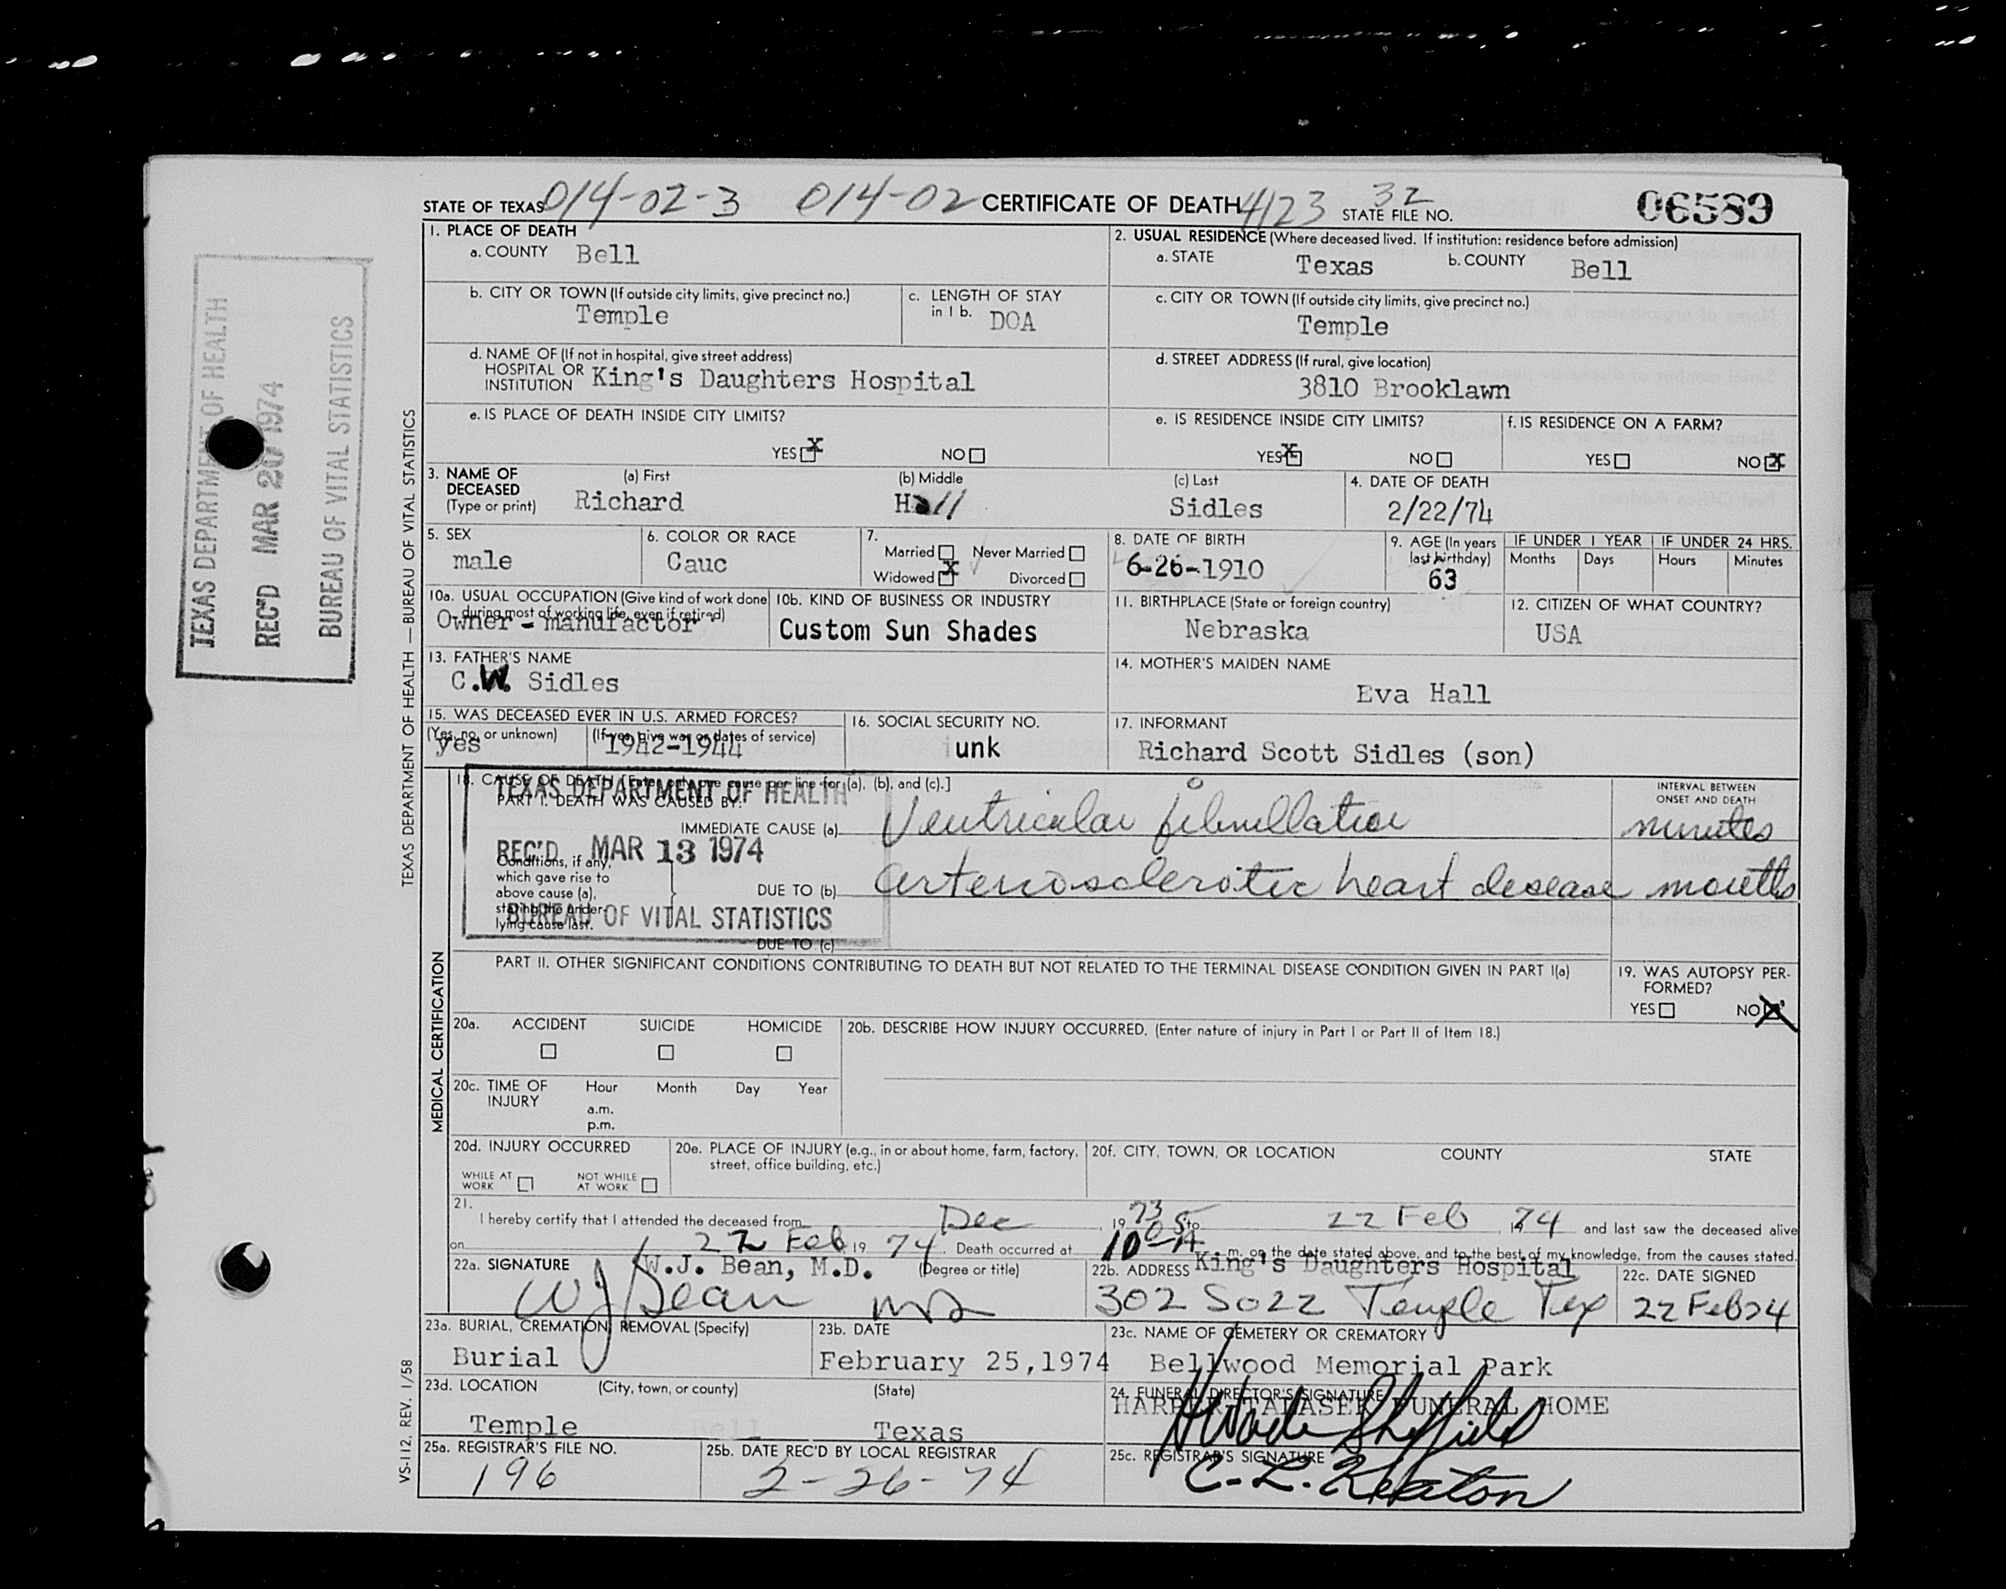 STATE OF TEXAS 014-02-3 014-02 CERTIFICATE OF DEATH 4123 32 STATE FILE NO. 06589
1. PLACE OF DEATH
a. COUNTY Bell
2. USUAL RESIDENCE (Where deceased lived. If institution: residence before admission)
a. STATE Texas b. COUNTY Bell
b. CITY OR TOWN (If outside city limits, give precinct no.)
Temple
c. LENGTH OF STAY
in 1 b. DOA
c. CITY OR TOWN (If outside city limits, give precinct no.)
Temple
d. NAME OF (If not in hospital, give street address)
HOSPITAL OR
INSTITUTION King's Daughters Hospital
d. STREET ADDRESS (If rural, give location)
3810 Brooklawn
e. IS PLACE OF DEATH INSIDE CITY LIMITS?
YES X NO
e. IS RESIDENCE INSIDE CITY LIMITS?
YES X NO
f. IS RESIDENCE ON A FARM?
YES NO X
3. NAME OF
DECEASED
(Type or print)
(a) First
Richard
(b) Middle
Hall
(c) Last
Sidles
4. DATE OF DEATH
2/22/74
5. SEX
male
6. COLOR OR RACE
Cauc
7.
Married Never Married
Widowed X Divorced
8. DATE OF BIRTH
6-26-1910
9. AGE (In years
last birthday)
63
IF UNDER 1 YEAR
Months Days
IF UNDER 24 HRS.
Hours Minutes
10a. USUAL OCCUPATION (Give kind of work done
during most of working life, even if retired)
Owner - manufactor
10b. KIND OF BUSINESS OR INDUSTRY
Custom Sun Shades
11. BIRTHPLACE (State or foreign country)
Nebraska
12. CITIZEN OF WHAT COUNTRY?
USA
13. FATHER'S NAME
C.W. Sidles
14. MOTHER'S MAIDEN NAME
Eva Hall
15. WAS DECEASED EVER IN U.S. ARMED FORCES?
(Yes, no, or unknown) (If yes, give war or dates of service)
yes 1942-1944
16. SOCIAL SECURITY NO.
unk
17. INFORMANT
Richard Scott Sidles (son)
18. CAUSE OF DEATH [Enter only one cause per line for (a), (b), and (c).]
PART I. DEATH WAS CAUSED BY:
INTERVAL BETWEEN
ONSET AND DEATH
IMMEDIATE CAUSE (a) Ventricular fibrillation minutes
Conditions, if any,
which gave rise to
above cause (a),
stating the under-
lying cause last.
DUE TO (b) arteriosclerotic heart disease months
DUE TO (c)
TEXAS DEPARTMENT OF HEALTH
REC'D MAR 13 1974
BUREAU OF VITAL STATISTICS
PART II. OTHER SIGNIFICANT CONDITIONS CONTRIBUTING TO DEATH BUT NOT RELATED TO THE TERMINAL DISEASE CONDITION GIVEN IN PART I(a)
19. WAS AUTOPSY PER-
FORMED?
YES NO X
20a. ACCIDENT SUICIDE HOMICIDE
20b. DESCRIBE HOW INJURY OCCURRED. (Enter nature of injury in Part I or Part II of Item 18.)
20c. TIME OF
INJURY
Hour Month Day Year
a.m.
p.m.
20d. INJURY OCCURRED
WHILE AT
WORK
NOT WHILE
AT WORK
20e. PLACE OF INJURY (e.g., in or about home, farm, factory,
street, office building, etc.)
20f. CITY, TOWN, OR LOCATION COUNTY STATE
21.
I hereby certify that I attended the deceased from Dec, 1973 to 22 Feb, 1974 and last saw the deceased alive
on 22 Feb 1974. Death occurred at 10 05 A m. on the date stated above, and to the best of my knowledge, from the causes stated.
22a. SIGNATURE W.J. Bean, M.D. (Degree or title)
WJ Bean MD
22b. ADDRESS King's Daughters Hospital
302 So 22 Temple Tex
22c. DATE SIGNED
22 Feb 74
23a. BURIAL, CREMATION, REMOVAL (Specify)
Burial
23b. DATE
February 25,1974
23c. NAME OF CEMETERY OR CREMATORY
Bellwood Memorial Park
23d. LOCATION (City, town, or county) (State)
Temple Bell Texas
24. FUNERAL DIRECTOR'S SIGNATURE
HARPER-TALASEK FUNERAL HOME
H Wade Sheffield
25a. REGISTRAR'S FILE NO.
196
25b. DATE REC'D BY LOCAL REGISTRAR
2-26-74
25c. REGISTRAR'S SIGNATURE
C. L. Keaton
TEXAS DEPARTMENT OF HEALTH
REC'D MAR 20 1974
BUREAU OF VITAL STATISTICS
TEXAS DEPARTMENT OF HEALTH — BUREAU OF VITAL STATISTICS
MEDICAL CERTIFICATION
VS-112, REV. 1/58